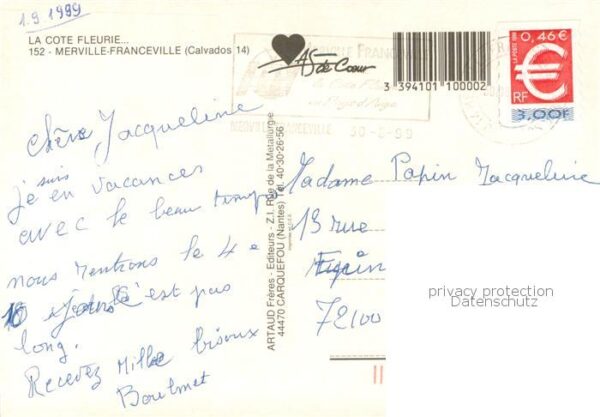 1.9.1999
LA COTE FLEURIE...
152 - MERVILLE-FRANCEVILLE (Calvados 14)
AS de Coeur
3 394101 100002
MERVILLE FRANCEVILLE 30-8-99
0,46€
LA POSTE
RF
3,00F
Chère Jacqueline
je suis en vacances
avec le beau temps
nous rentrons le 4 e
10 jours c'est pas
long.
Recevez Mille bisoux
ARTAUD Frères - Editeurs - Z.I. Rue de la Métallurgie
44470 CARQUEFOU (Nantes) Tél. 40-30-26-56
Madame Papin Jacqueline
13 rue
72100
privacy protection
Datenschutz